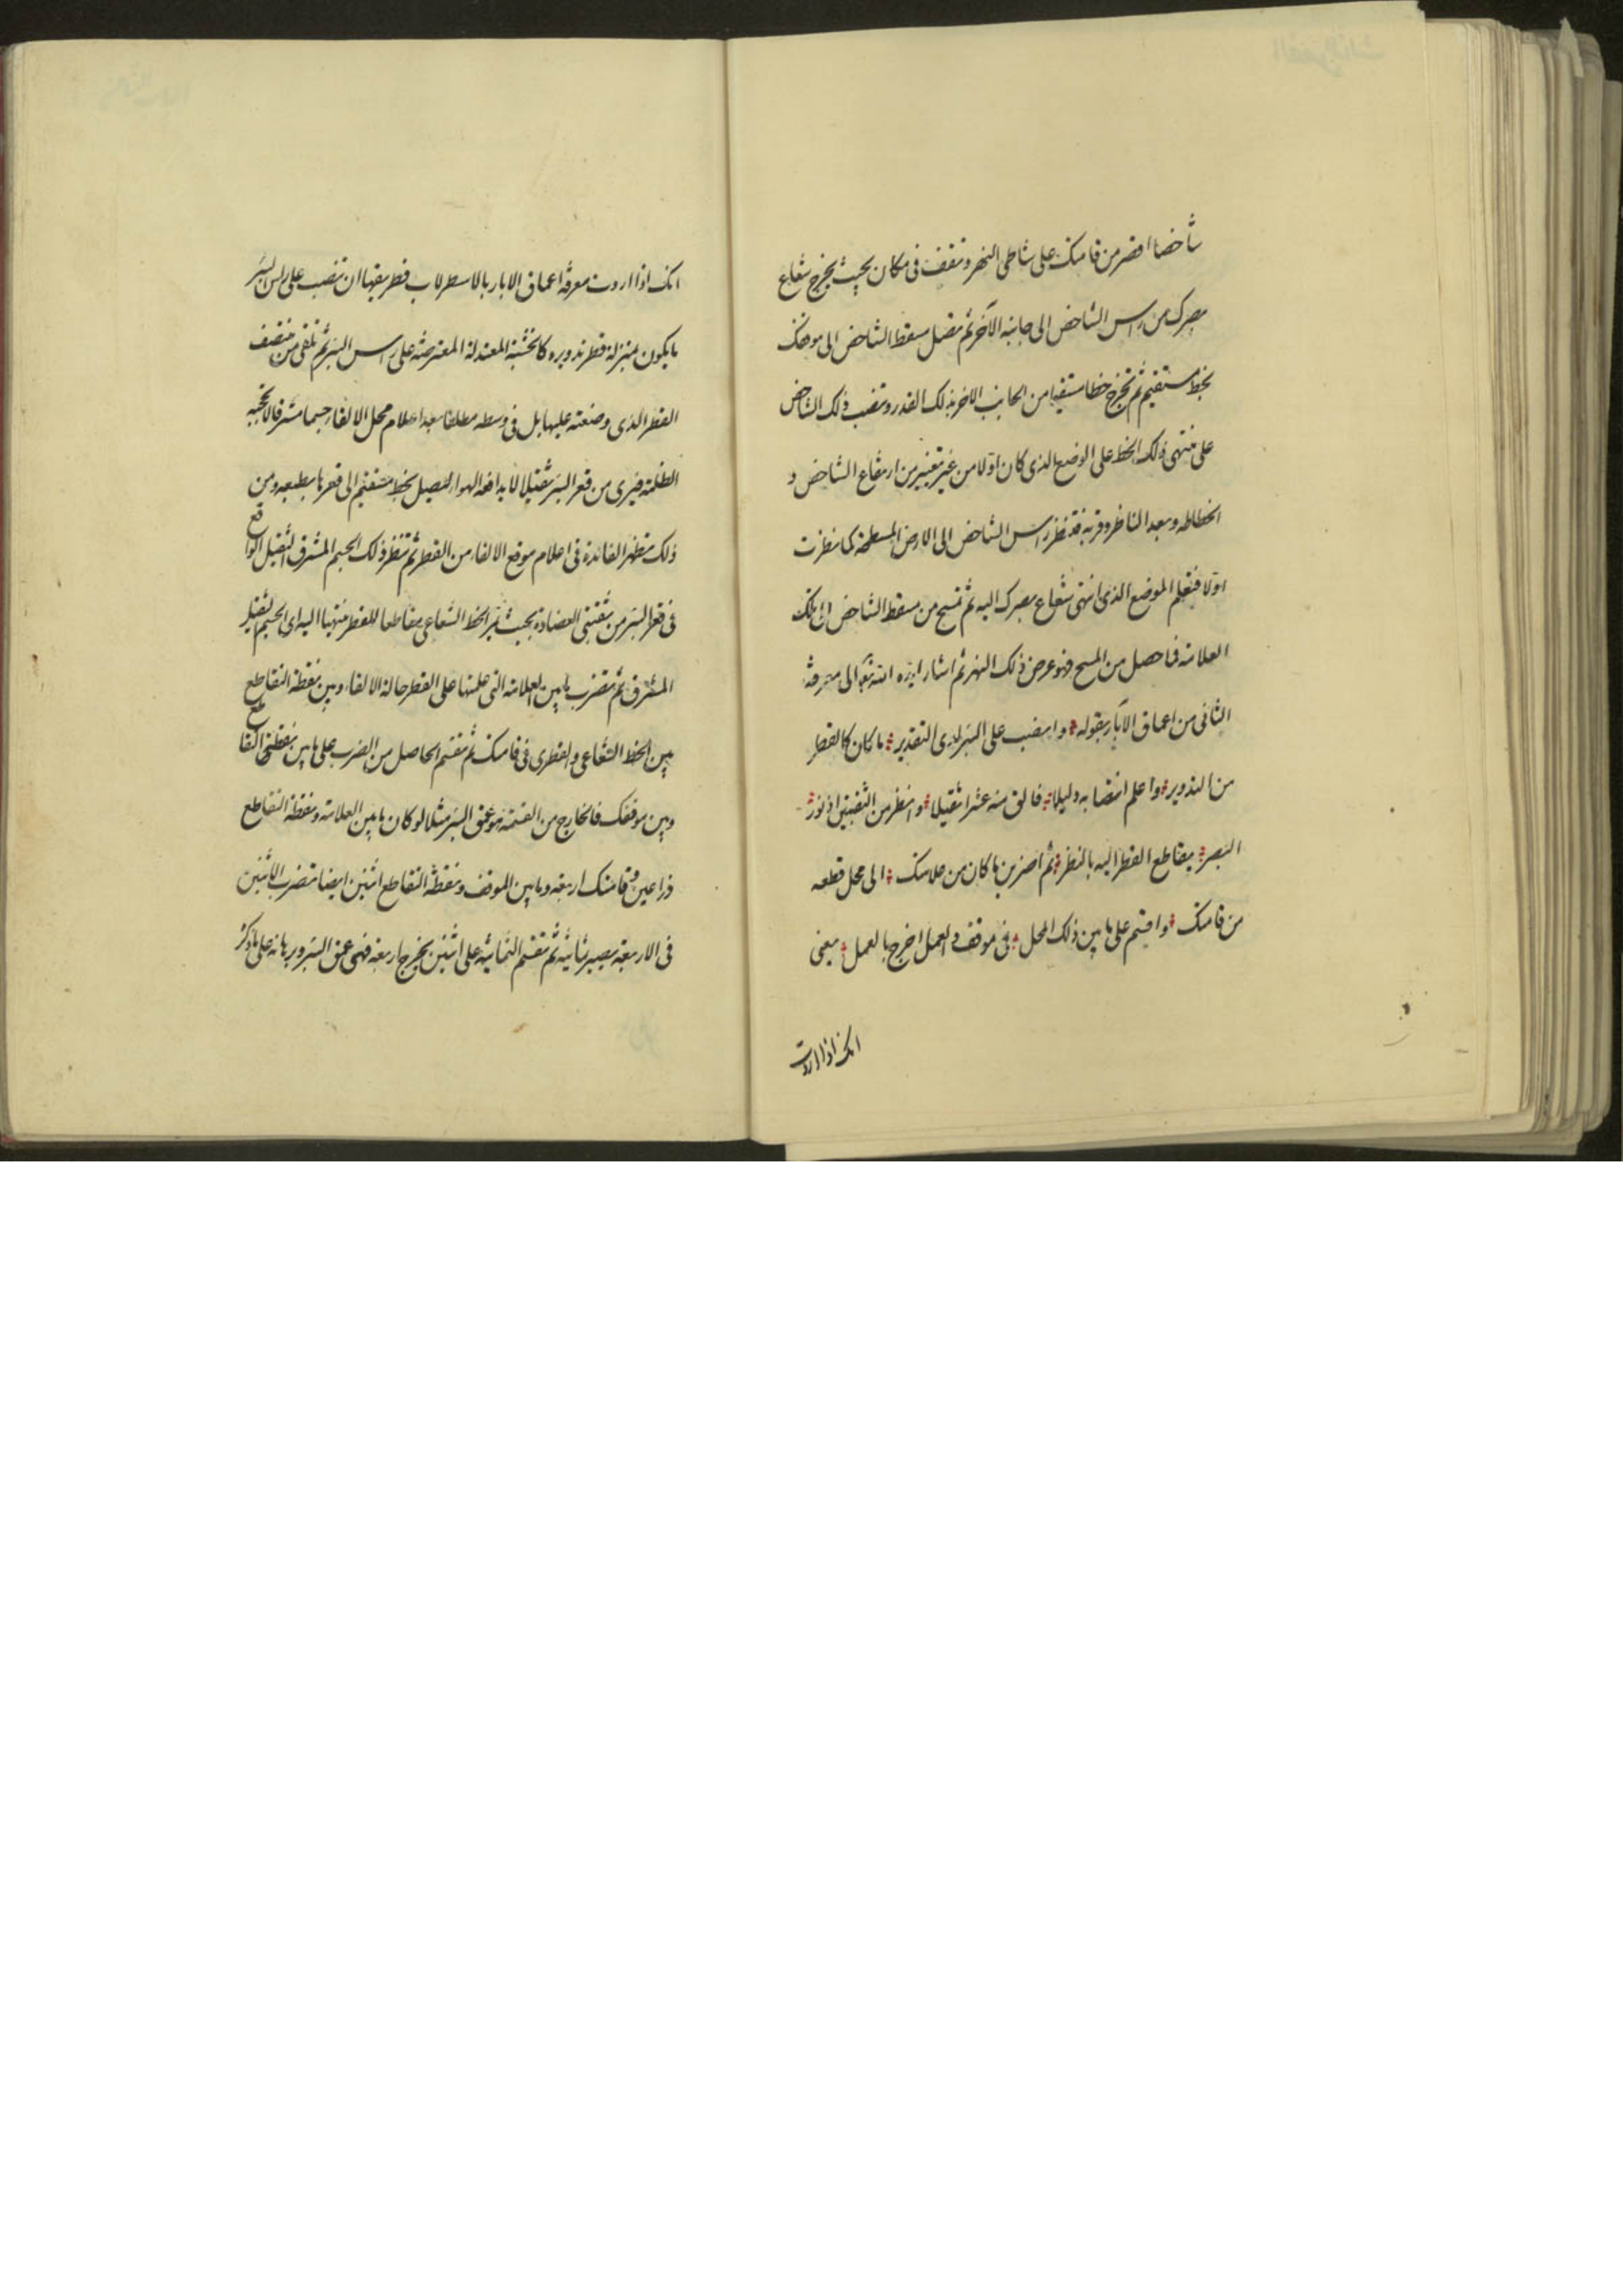 شاخصا اقصر من قامتك على شاطى النهر وتقف فى مكان بحيث يخرج شعاع
بصرك من راس الشاخص الى جانبه الآخر ثم تصل مسقط الشاخص الى موقفك
بخط مستقيم ثم تخرج خطا مستقيما من الجانب الاخر بذلك القدر وتنصب ذلك الشاخص
على منتهى ذلك الخط على الوضع الذى كان اولا من غير تغيير من ارتفاع الشاخص و
انحطاطه وبعد الناظر وقربه فتنظر راس الشاخص الى الارض المسطحة كما نظرت
اولا فتعلم الموضع الذى انتهى شعاع بصرك اليه ثم تمسح من مسقط الشاخص الى تلك
العلامة فما حصل من المسح فهو عرض ذلك النهر ثم اشار ايده الله تعالى الى معرفة
الثانى من اعماق الآبار بقوله وانصب على البئر لدى التقدير ما كان كالقطر
من التدوير واعلم انتصابه دليلا فالق منه عشرا ثقيلا وانظر من الثقبتين اذ نور
البصر يقاطع القطر اليه بالنظر ثم اضربن ما كان من علامتك الى محل قطعه
من قامتك واقسم على ما بين ذلك المحل وفى موقف العمل اخرج بالعمل يعنى
انك اذا اردت
انك اذا اردت معرفة اعماق الابار بالاسطرلاب فطريقها ان تنصب على راس البئر
ما يكون بمنزلة قطر تدويره كالخشبة المعتدلة المعترضة على راس البئر ثم تلقى من منتصف
القطر الذى وضعته عليها بل فى وسطه مطلقا بعد اعلام محل الالقاء جسما مشرقا لا تحجبه
الظلمة فيرى من قعر البئر ثقيلا لا يدافعه الهواء ليصل بخط مستقيم الى قعرها بطبعه ومن
ذلك تظهر الفائدة فى اعلام موضع الالقاء من القطر ثم تنظر ذلك الجسم المشرق الثقيل الواقع
فى قعر البئر من ثقبتى العضادة بحيث يمر الخط الشعاعى مقاطعا للقطر منتهيا اليه اى الجسم الثقيل
المشرق ثم تضرب ما بين العلامة التى علمتها على القطر حالة الالقاء وبين نقطة التقاطع
بين الخط الشعاعى والقطرى فى قامتك ثم تقسم الحاصل من الضرب على ما بين نقطتى التقاطع
وبين موقفك فالخارج من القسمة هو عمق البئر مثلا لو كان ما بين العلامة ونقطة التقاطع
ذراعين وقامتك اربعة وما بين الموقف ونقطة التقاطع اثنين ايضا تضرب الاثنين
فى الاربعة يصير ثمانية ثم تقسم الثمانية على اثنين يخرج اربعة فهى عمق البئر وبرهانه على ما ذكر